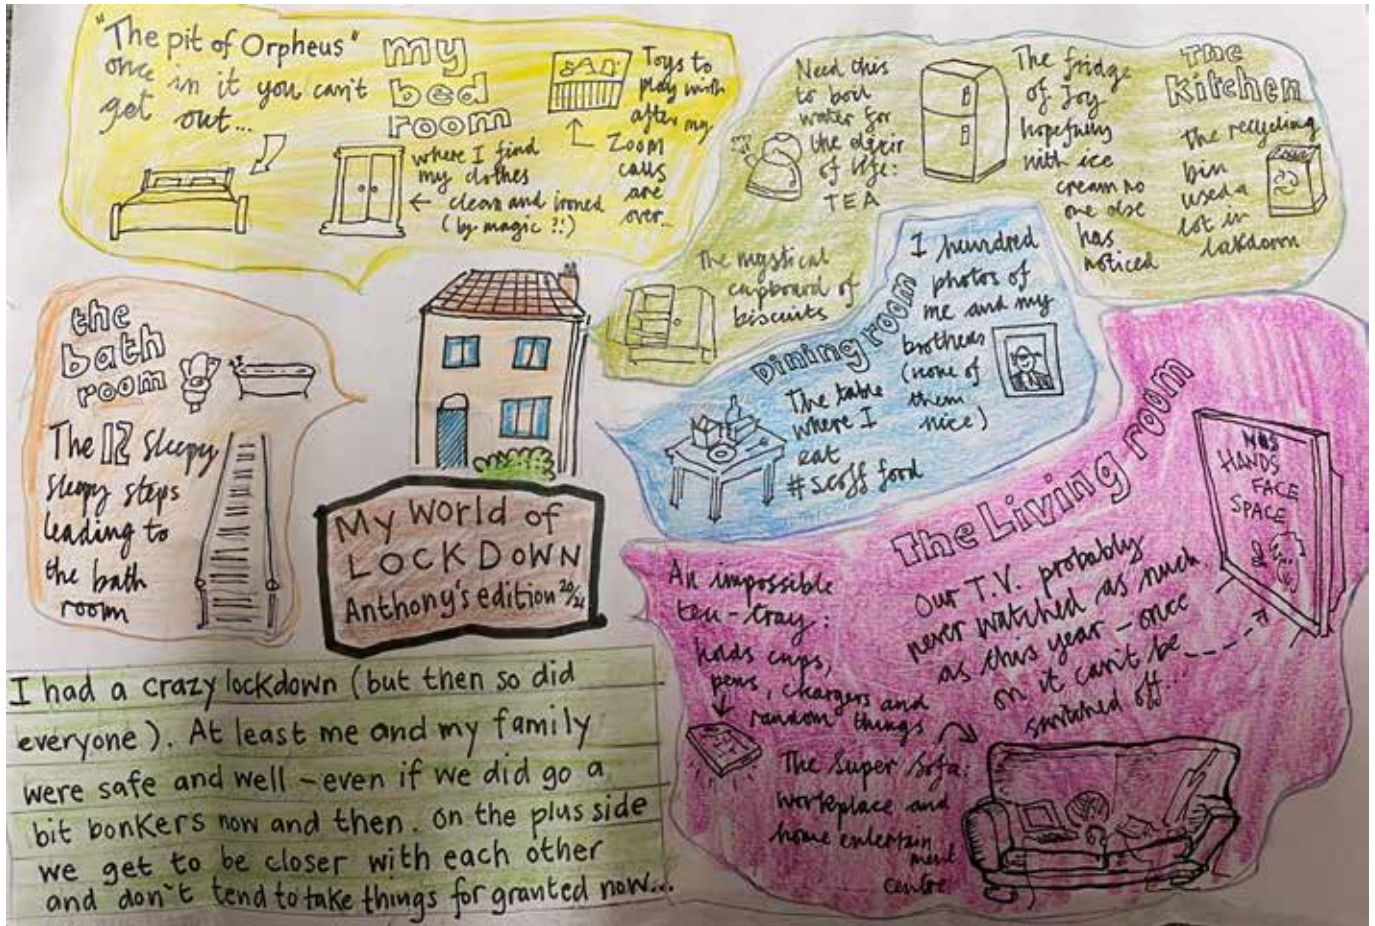 "The pit of Orpheus"
once in it you can't
get out...
my
bed
room
where I find
my clothes
clean and ironed
(by magic ?!)
Toys to
play with
after my
Zoom
calls
are
over...
Need this
to boil
water for
the elixir
of life:
TEA
The fridge
of Joy
hopefully
with ice
cream no
one else
has
noticed
The
Kitchen
The recycling
bin
used a
lot in
lokdown
The mystical
cupboard of
biscuits
the
bath
room
The 12 Sleepy
Sleepy steps
leading to
the bath
room
Dining room
1 hundred
photos of
me and my
brothers
(none of
them
nice)
The table
where I
eat
#scoff food
My World of
LOCKDOWN
Anthony's edition 20/21
The Living room
NHS
HANDS
FACE
SPACE
Our T.V. probably
never watched as much
as this year - once
on it can't be
switched off...
An impossible
tea-tray:
holds cups,
pens, chargers and
random things
The Super Sofa:
workplace and
home entertain
ment
centre
I had a crazy lockdown (but then so did
everyone). At least me and my family
were safe and well - even if we did go a
bit bonkers now and then. On the plus side
we get to be closer with each other
and don't tend to take things for granted now...